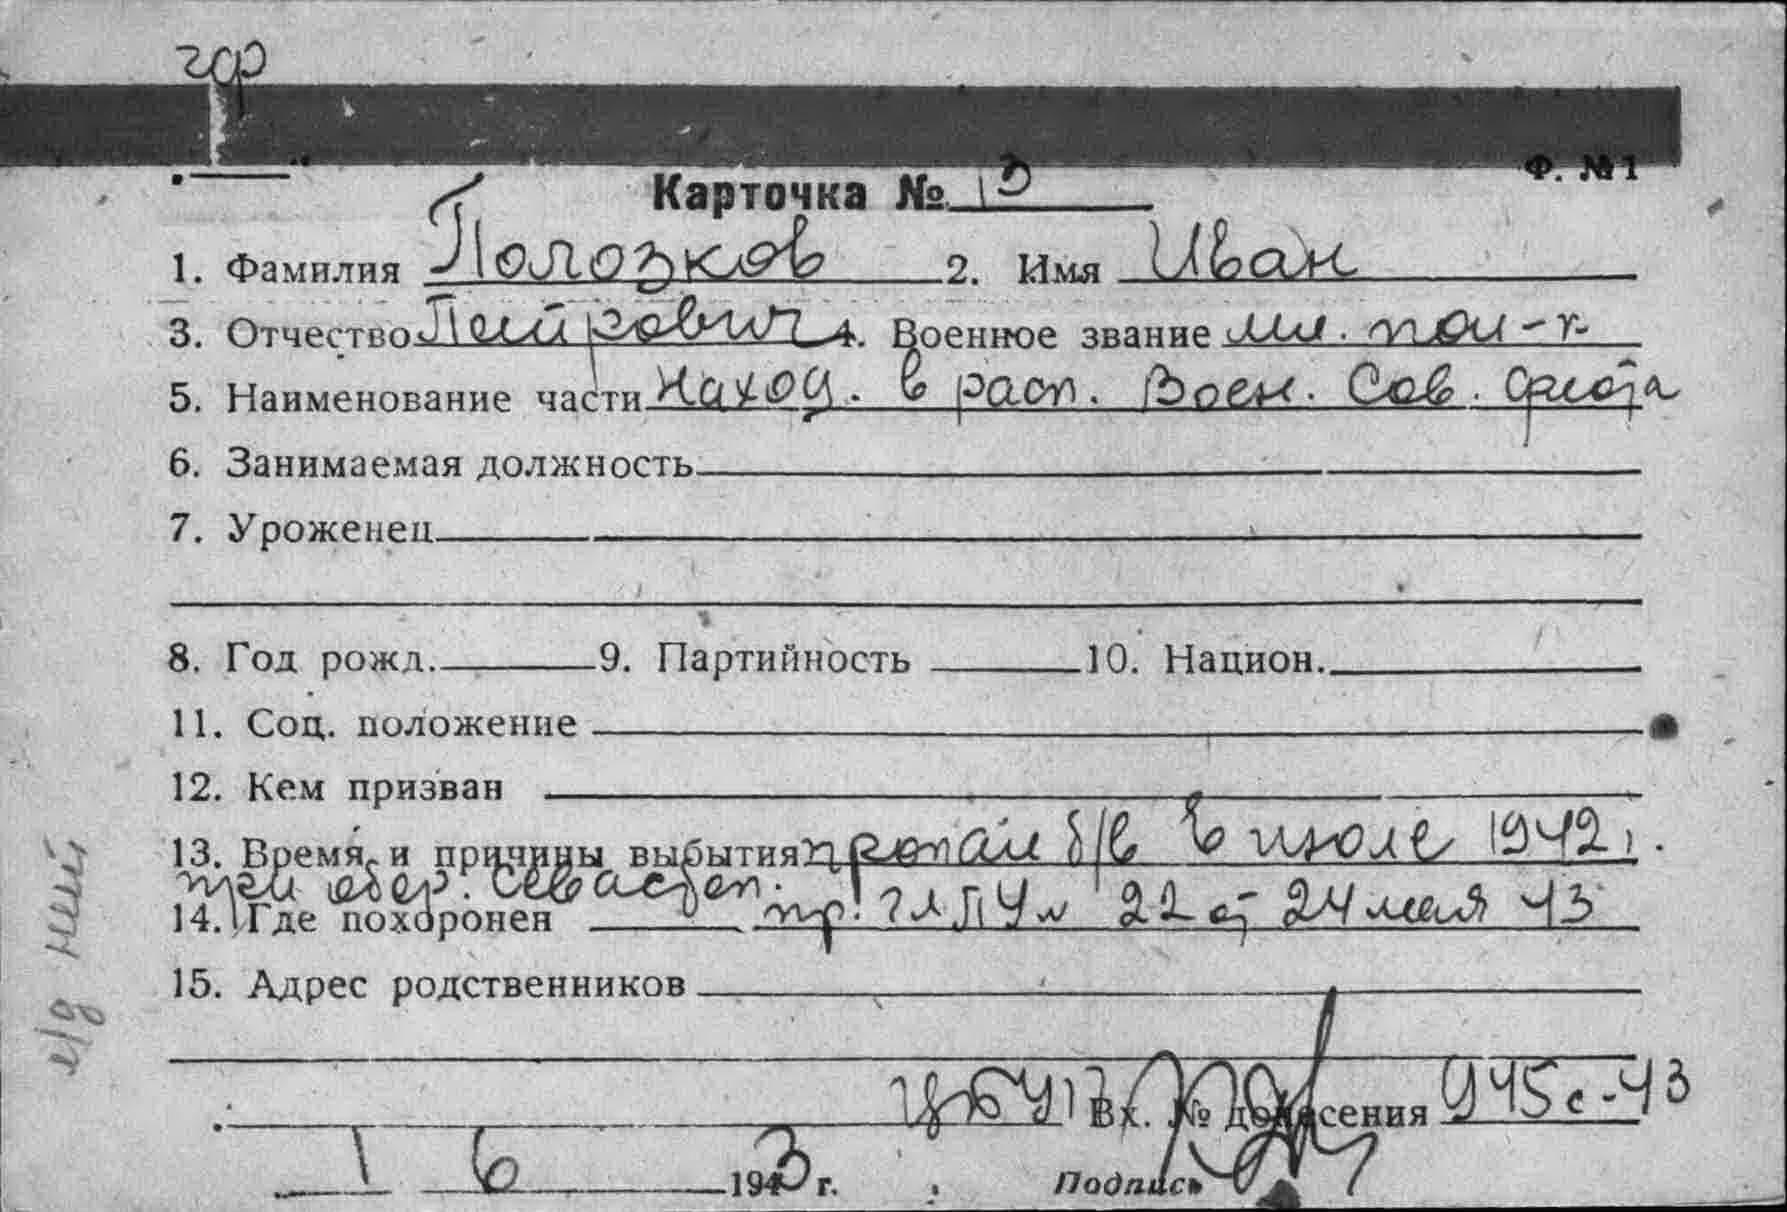 Ф. №1
Карточка № 13
1. Фамилия Полозков 2. Имя Иван
3. Отчество Петрович 4. Военное звание мл. пол-к
5. Наименование части Наход. в расп. Воен. Сов. флота
6. Занимаемая должность
7. Уроженец
8. Год рожд. 9. Партийность 10. Национ.
11. Соц. положение
12. Кем призван
13. Время и причины выбытия пропал б/в в июле 1942 г.
при обор. Севастоп.
14. Где похоронен пр. ГлПУ № 22 от 24 мая 43
15. Адрес родственников
л/д нет
Вх. № донесения 945с-43
1 6 1943 г. Подпись